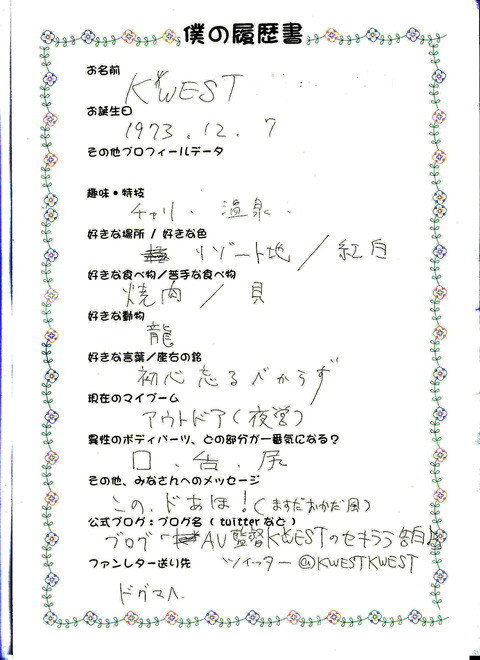 僕の履歴書
お名前
K*WEST
お誕生日
1973.12.7
その他プロフィールデータ
趣味・特技
チャリ . 温泉 .
好きな場所 / 好きな色
リゾート地 / 紅白
好きな食べ物/苦手な食べ物
焼肉 / 貝
好きな動物
龍
好きな言葉/座右の銘
初心忘るべからず
現在のマイブーム
アウトドア(夜営)
異性のボディパーツ、どの部分が一番気になる?
口 . 舌 . 尻
その他、みなさんへのメッセージ
この、ドあほ!(ますだおかだ風)
公式ブログ:ブログ名 ( twitterなど )
ブログ AV監督K*WESTのセキララ告白
ファンレター送り先 ツイッター @KWESTKWEST
ドグマへ